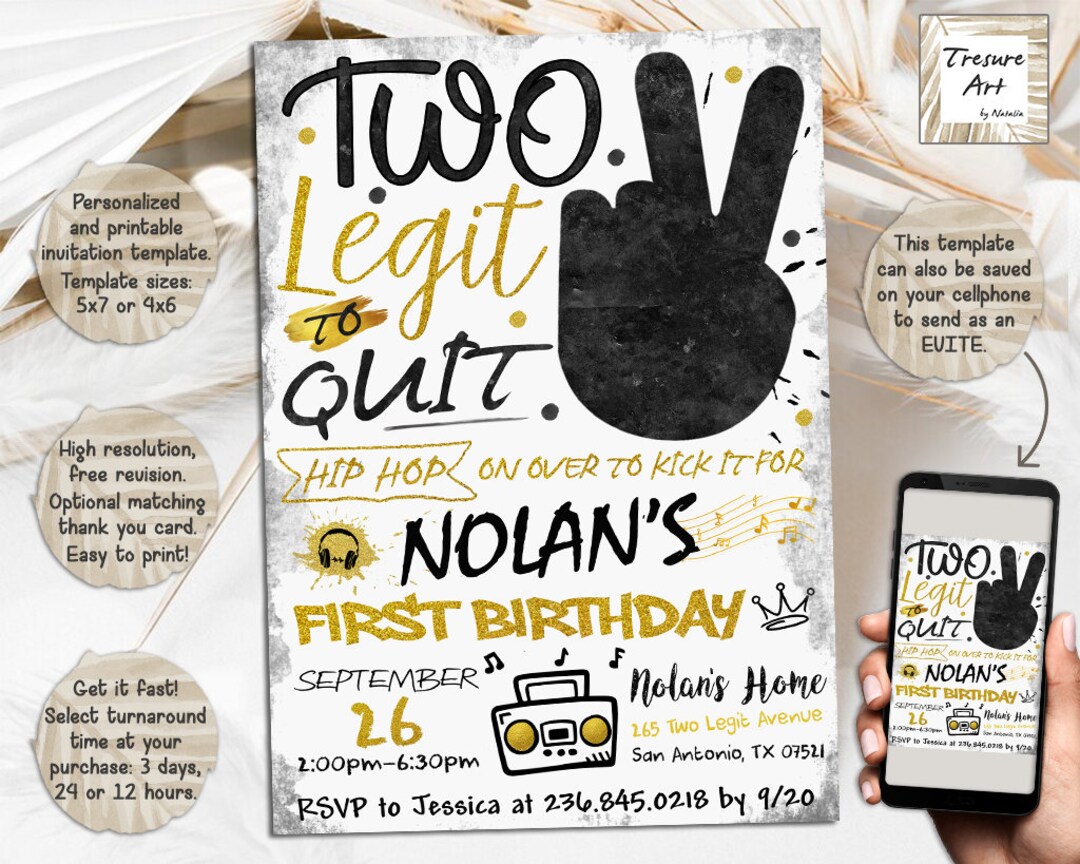 Tresure
Art
by Natalia
Personalized
and printable
invitation template.
Template sizes:
5x7 or 4x6
High resolution,
free revision.
Optional matching
thank you card.
Easy to print!
Get it fast!
Select turnaround
time at your
purchase: 3 days,
24 or 12 hours.
TWO
Legit
TO
QUIT
HIP HOP ON OVER TO KICK IT FOR
NOLAN'S
FIRST BIRTHDAY
SEPTEMBER
26
2:00pm-6:30pm
Nolan's Home
265 Two Legit Avenue
San Antonio, TX 07521
RSVP to Jessica at 236.845.0218 by 9/20
This template
can also be saved
on your cellphone
to send as an
EVITE.
TWO
Legit
TO
QUIT
HIP HOP ON OVER TO KICK IT FOR
NOLAN'S
FIRST BIRTHDAY
SEPTEMBER
26
2:00pm-6:30pm
Nolan's Home
265 Two Legit Avenue
San Antonio, TX 07521
RSVP to Jessica at 236.845.0218 by 9/20